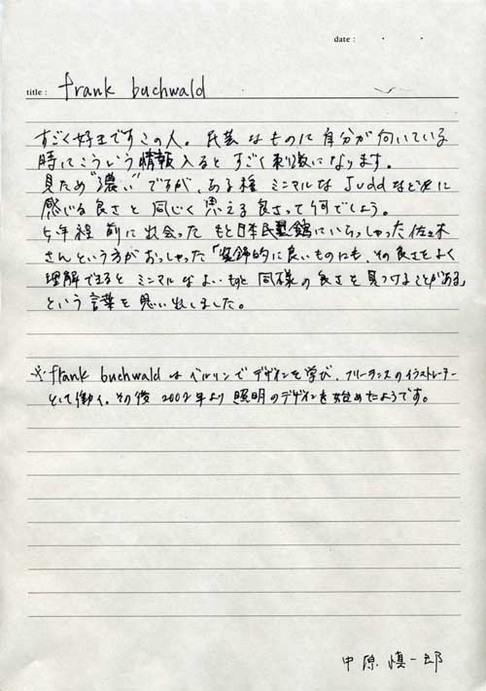 date :
title : frank buchwald
すごく好きですこの人。民芸なものに自分が向いている
時にこういう情報入るとすごく刺激になります。
見ため“濃い”ですが、ある種 ミニマルな Juddなど々に
感じる良さと同じく思える良さって何でしょう。
5年程前に出会った もと日本民藝館にいらっしゃった佐々木
さんという方がおっしゃった「装飾的に良いものにも、その良さをよく
理解できると ミニマルなよいものと同様の良さを見つけることがある」
という言葉を思い出しました。
※frank buchwaldはベルリンでデザインを学び、フリーランスのイラストレーター
として働く。その後 2002年より照明のデザインを始めたようです。
中原慎一郎